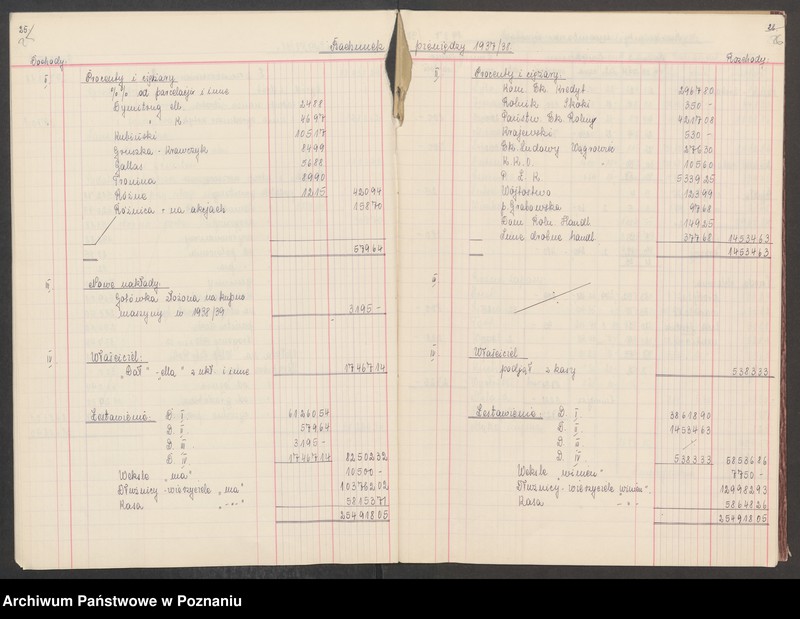 25
Rachunek
Dochody:
II Procenty i ciężary
%% od parcelacji i inne
24 88
46 97
Kubiński 105 17
Gruszka - Krawczyk 84 99
Gallas 36 88
Franina 89 90
Różne 12 15 420 94
Różnica + na akcjach 158 70
579 64
III Nowe nakłady.
Gotówka złożona na kupno
maszyny w 1938/39 3 195 -
IV Właściciel:
17 467 14
Zestawienie: D. I 61 260 54
D. II 579 64
D. III 3 195 -
D. IV 17 467 14 82 502 32
Weksle "ma" 10 500 -
Dłużnicy - wierzyciele "ma" 103 762 02
Kasa " - " 58 153 71
254 918 05
26
pieniędzy 1937/38
Rozchody.
II Procenty i ciężary.
Kom. Bk. Kredyt 2 967 80
Rolnik Skoki 350 -
Państw. Bk. Rolny 4 217 08
Krajewski 530 -
Bk. Ludowy Wągrowiec 276 30
K. K. O. 105 60
P. Z. K. 5 339 25
Wójtostwo 123 99
p. Grabowska 97 68
Dom Roln. Handl. 149 25
Inne drobne handl. 377 68 14 534 63
14 534 63
III
IV Właściciel
podjął z kasy 5 383 33
Zestawienie: D. I 38 618 90
D. II 14 534 63
D. III
D. IV 5 383 33 58 536 86
Weksle "winien" 7 750 -
Dłużnicy - wierzyciele "winien" 129 982 93
Kasa " - " 58 648 26
254 918 05
Archiwum Państwowe w Poznaniu